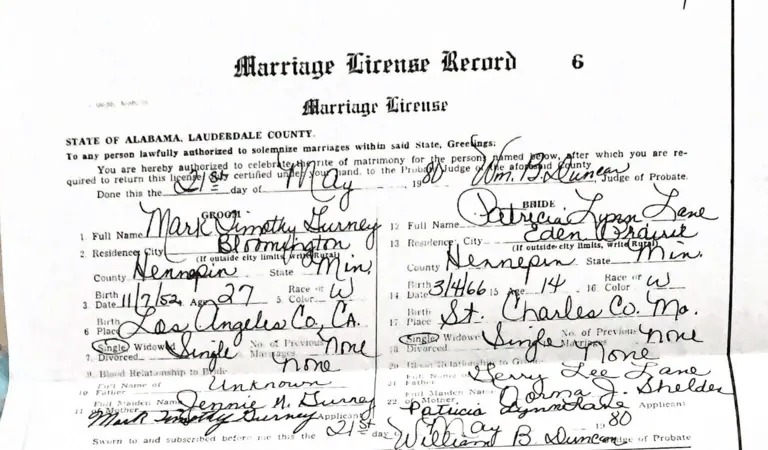 Marriage License Record 6
Marriage License
STATE OF ALABAMA, LAUDERDALE COUNTY.
To any person lawfully authorized to solemnize marriages within said State, Greetings:
You are hereby authorized to celebrate the rite of matrimony for the persons named below, after which you are re-
quired to return this license certified under your hand, to the Probate Judge of the aforesaid county
Done this the 21st day of May 1980 Wm. B. Duncan Judge of Probate.
GROOM
1 Full Name Mark Timothy Gurney
2. Residence, City Bloomington
(If outside city limits, write Rural)
County Hennepin State Min.
3 Birth Date 11/7/52 4. Age 27 5. Race or Color W
6 Birth Place Los Angeles Co, CA.
7. Single Widowed Divorced Single No. of Previous Marriages None
9. Blood Relationship to Bride None
10 Full Name of Father Unknown
11 Full Maiden Name of Mother Jennie M. Gurney
Mark Timothy Gurney Applicant
BRIDE
12 Full Name Patricia Lynn Lane
13 Residence, City Eden Prairie
(If outside city limits, write Rural)
County Hennepin State Min.
14 Birth Date 3/4/66 15 Age 14 16. Race or Color W
17 Birth Place St. Charles Co. Mo.
18 Single Widowed Divorced Single No. of Previous Marriages None
20 Blood Relationship to Groom None
21 Father Terry Lee Lane
22 Full Maiden Name of Mother Norma J. Shelden
Patricia Lynn Lane Applicant
Sworn to and subscribed before me this the 21st day May 1980
William B. Duncan Judge of Probate